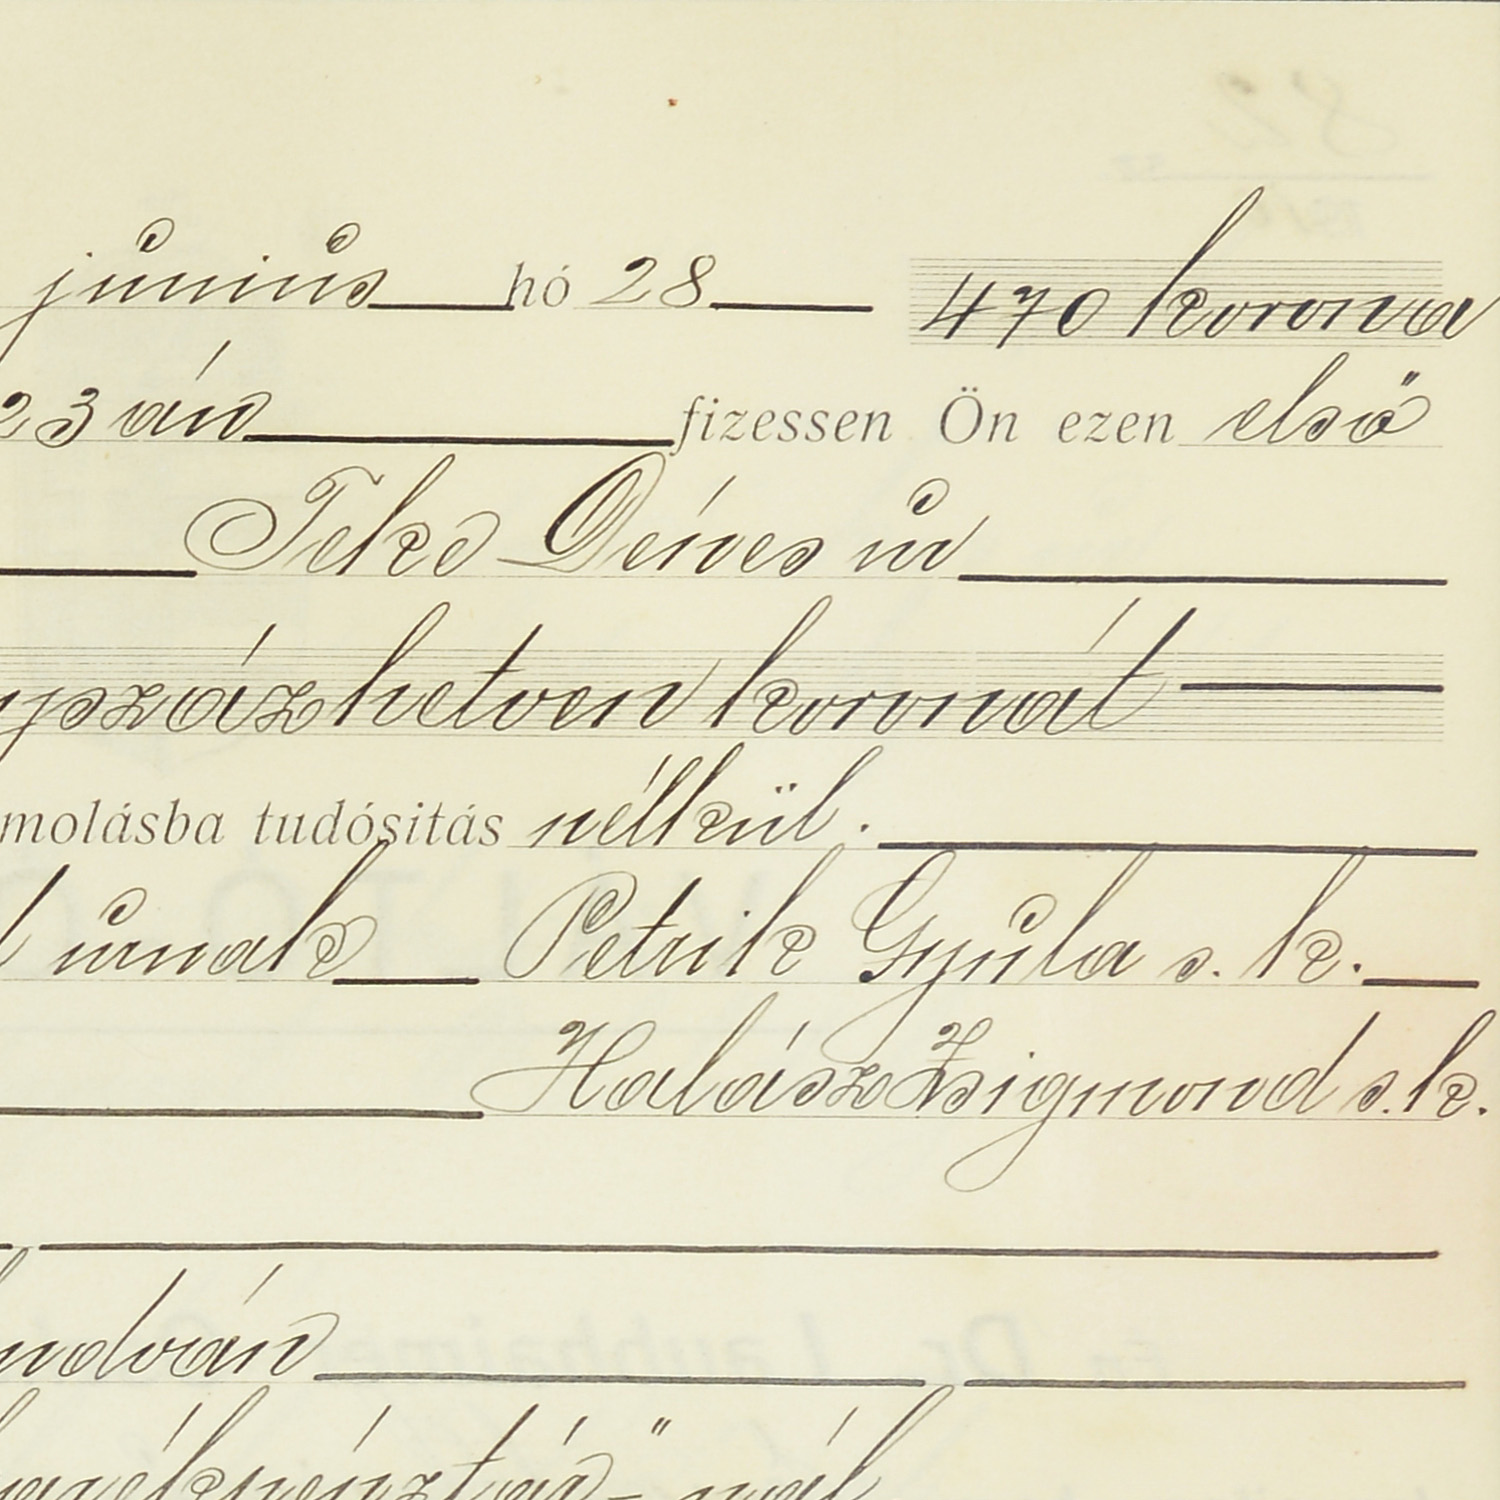 június hó 28 470 korona
23 án fizessen Ön ezen első
Teke Dénes úr
yszázhetven koronát
molásba tudósitás nélkül.
úrnak Petrik Gyula s. k.
Halász Zsigmond s. k.
ndrán
arékpénztár"-nál